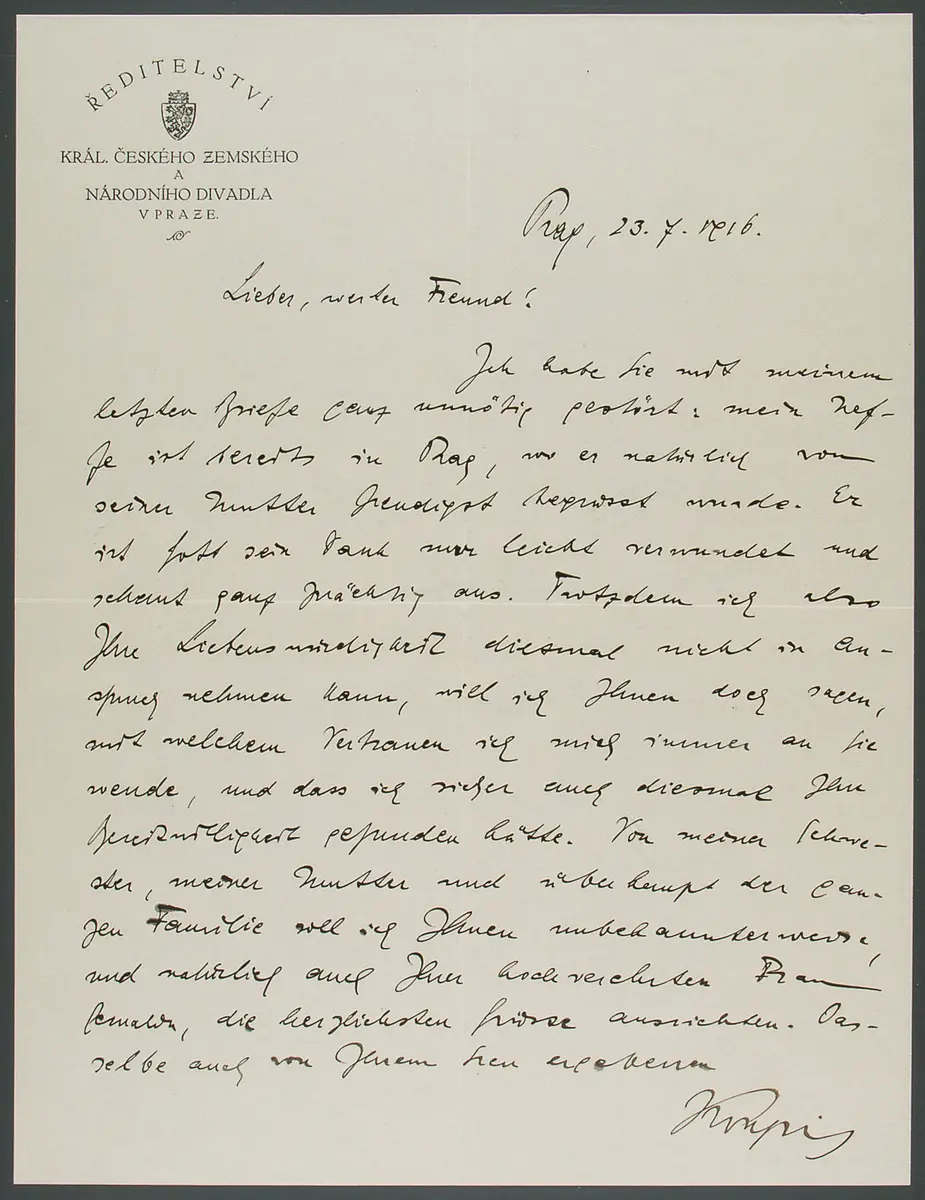 ŘEDITELSTVÍ
KRÁL. ČESKÉHO ZEMSKÉHO
A
NÁRODNÍHO DIVADLA
V PRAZE.
Prag, 23. 7. 1916.
Lieber, werter Freund!
Ich habe Sie mit meinem
letzten Briefe ganz unnötig gestört: mein Nef-
fe ist bereits in Prag, wo er natürlich von
seiner Mutter freudigst begrüsst wurde. Er
ist Gott sein Dank nur leicht verwundet und
schaut ganz prächtig aus. Trotzdem ich also
Ihre Liebenswürdigkeit diesmal nicht in An-
spruch nehmen kann, will ich Ihnen doch sagen,
mit welchem Vertrauen ich mich immer an Sie
wende, und dass ich sicher auch diesmal Ihre
Bereitwilligkeit gefunden hätte. Von meiner Schwe-
ster, meiner Mutter und überhaupt der gan-
zen Familie soll ich Ihnen unbekannterweise,
und natürlich auch Ihrer hochverehrten Frau
Gemahlin, die herzlichsten Grüsse ausrichten. Das-
selbe auch von Ihrem treu ergebenen